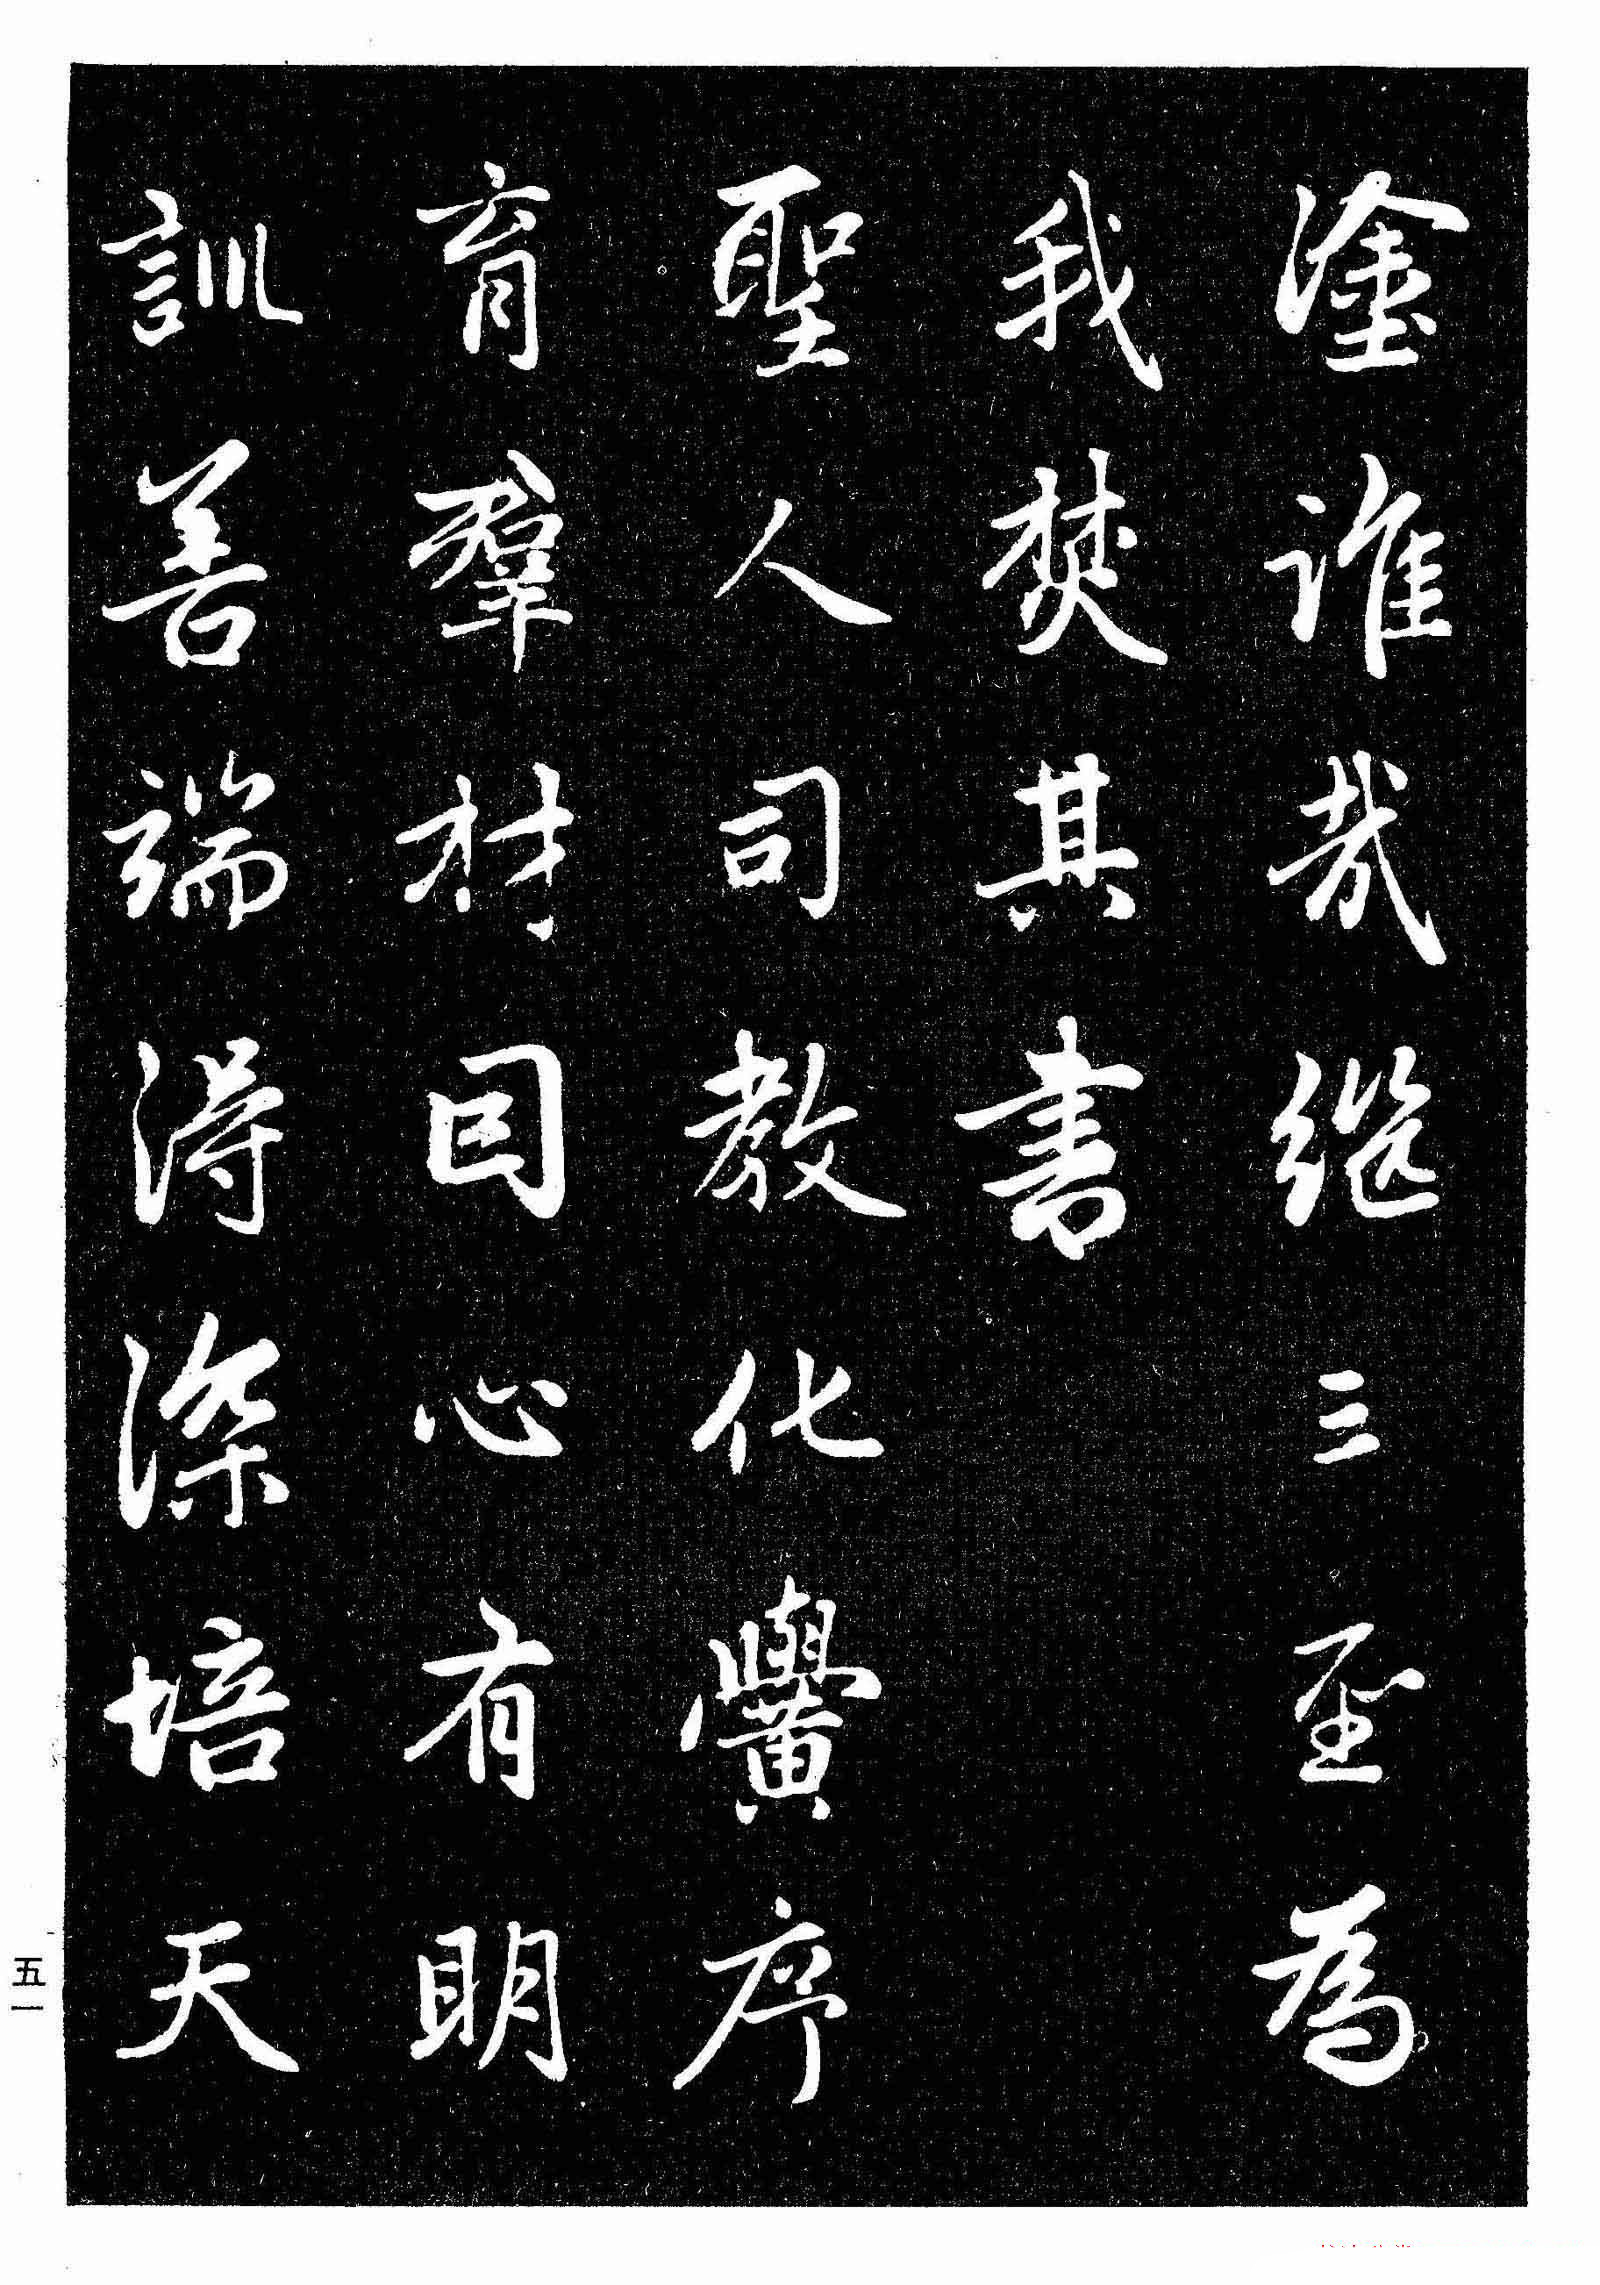 塗誰哉繼三聖為
我焚其書
聖人司教化黌序
育羣材因心有明
訓善端得深培天
五一